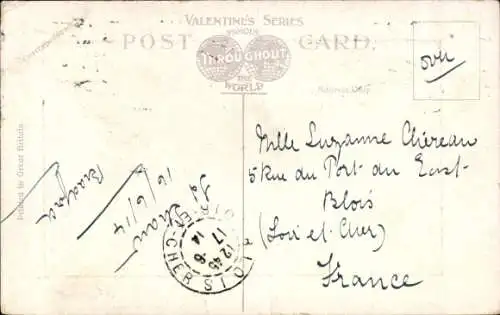 VALENTINE'S SERIES
FAMOUS
POST CARD.
THROUGHOUT
THE
WORLD
over
Printed in Great Britain
16/6/14
Mlle Suzanne Chéreau
5 Rue du Port du East-
Blois
(Loir et-Cher)
France
BLOIS
LOIR-ET-CHER
12 45
17 -6
14